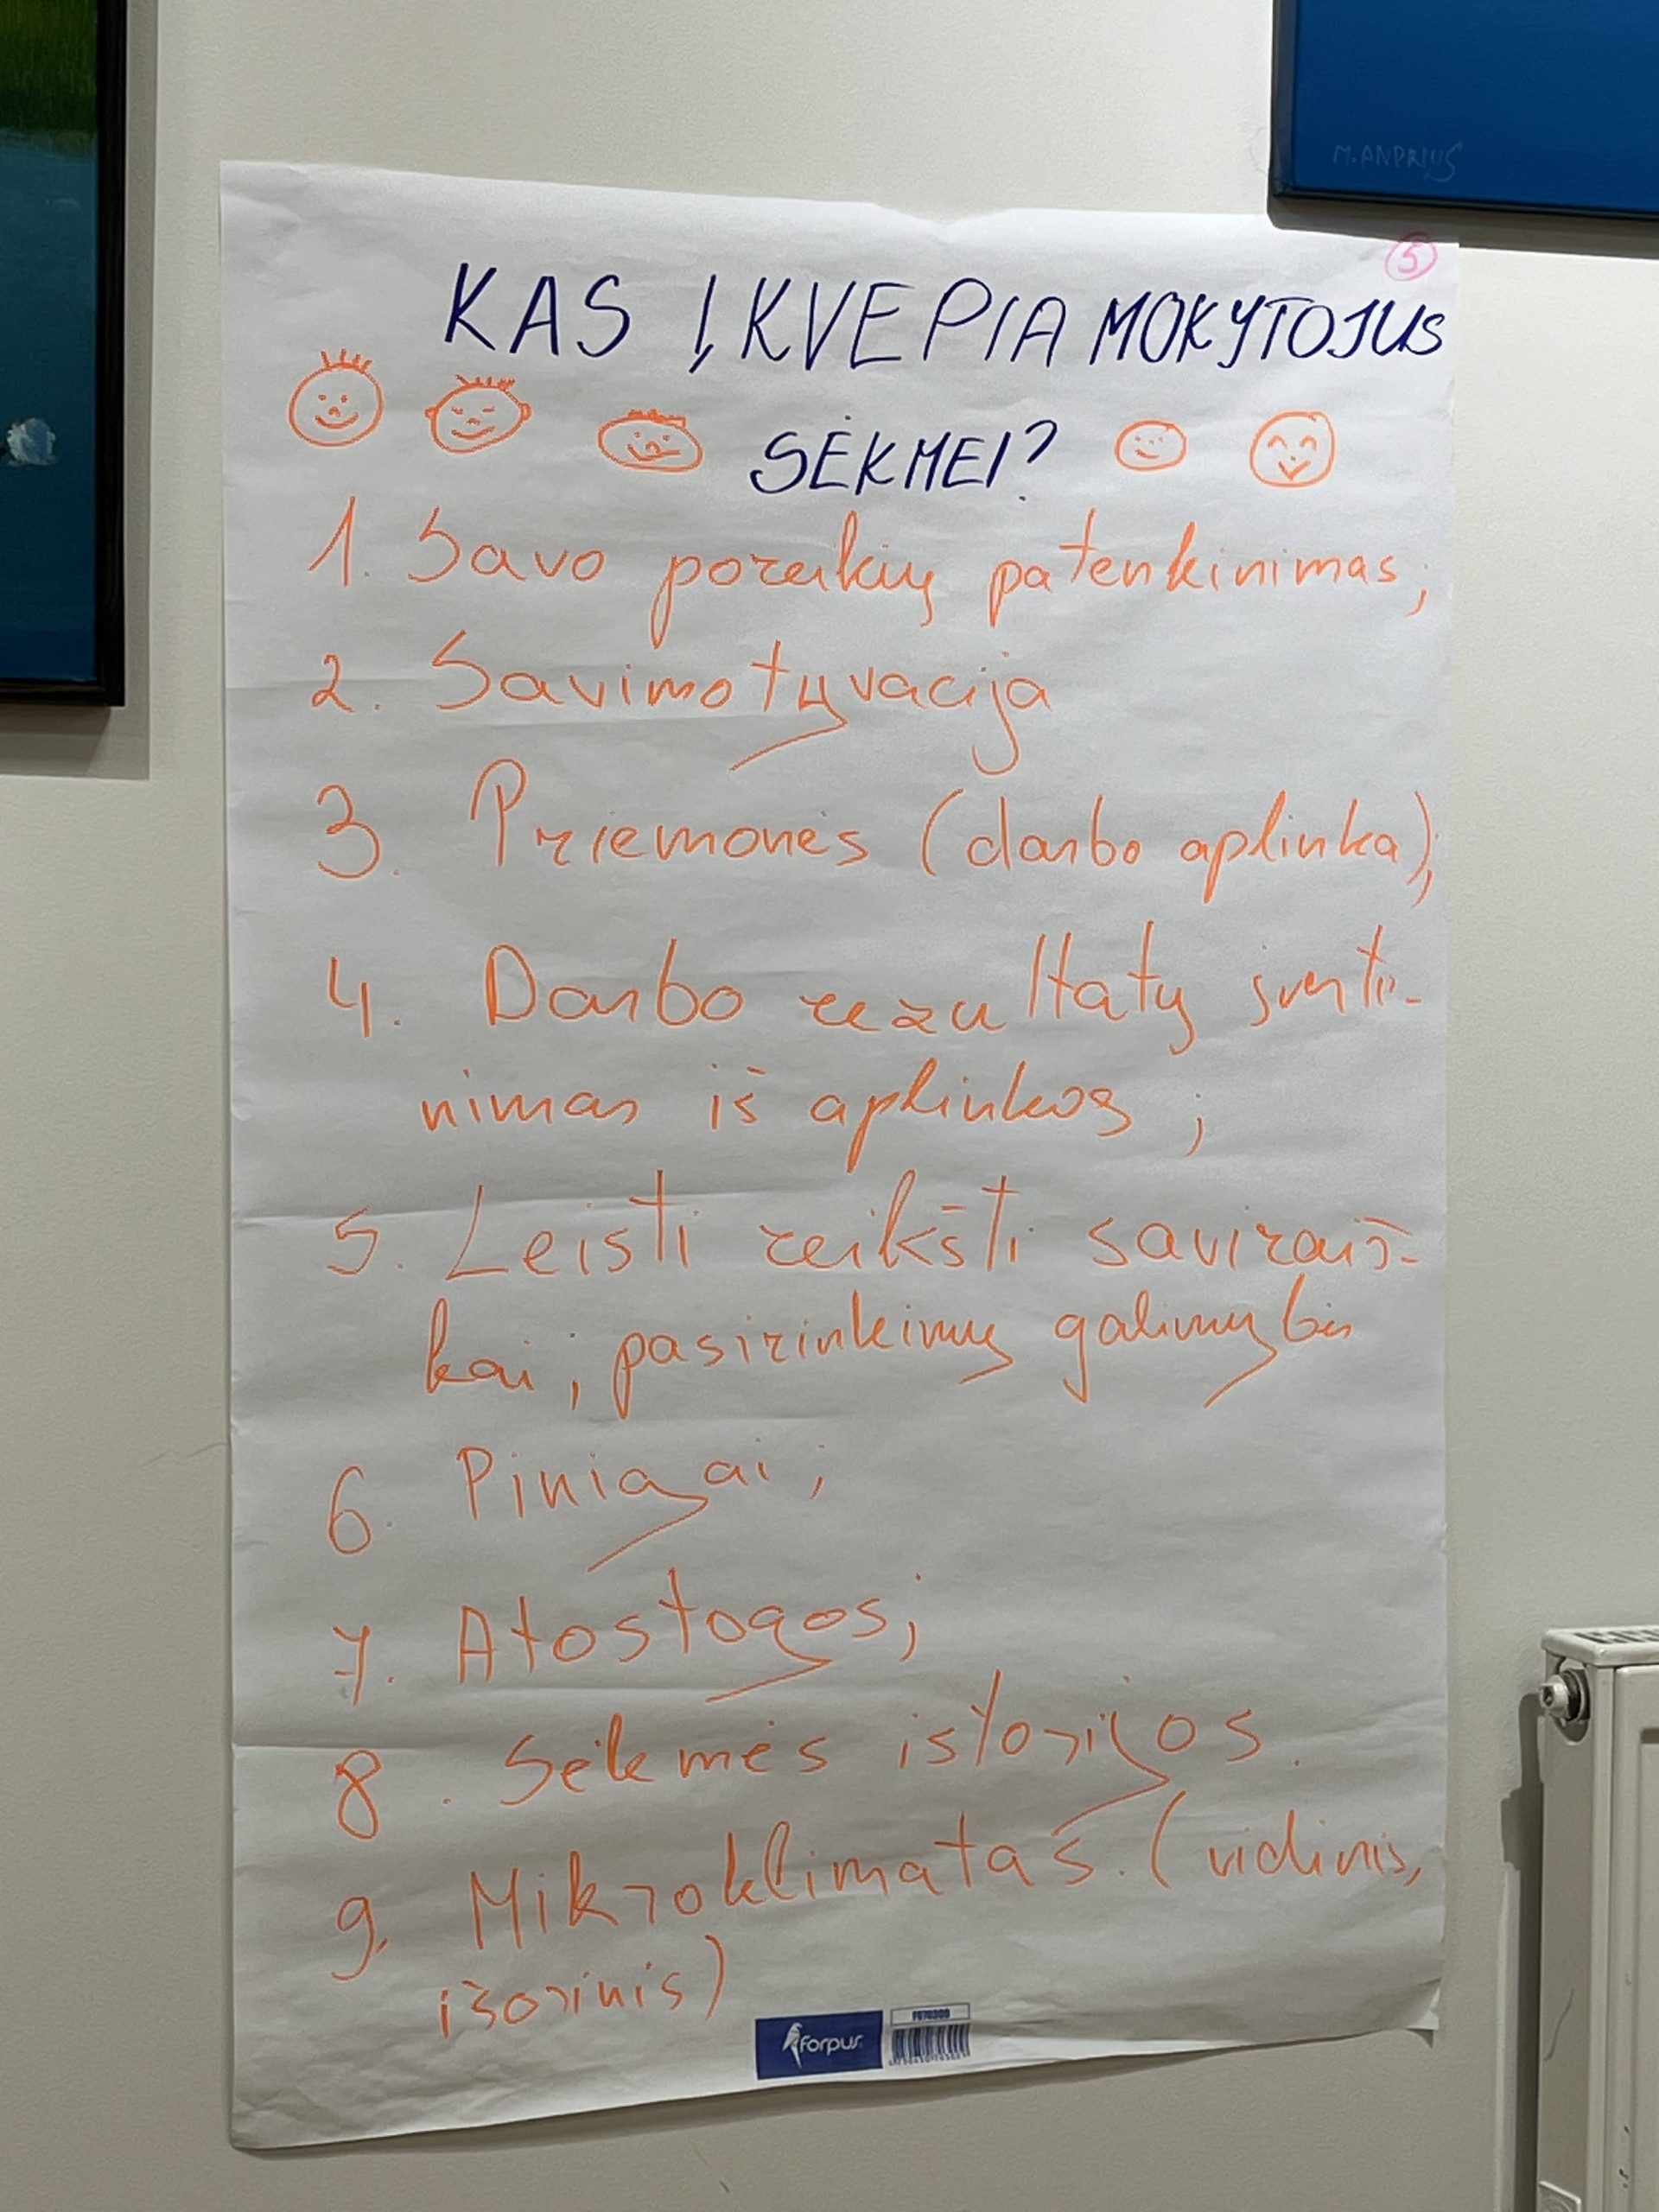 M. ANDRIUS
5
KAS ĮKVEPIA MOKYTOJUS
SĖKMEI?
1. Savo poreikių patenkinimas;
2. Savimotyvacija
3. Priemonės (darbo aplinka);
4. Darbo rezultatų įverti-
nimas iš aplinkos;
5. Leisti reikšti saviraiš-
kai, pasirinkimų galimybės
6. Pinigai;
7. Atostogos;
8. Sėkmės istorijos.
9. Mikroklimatas. (vidinis,
išorinis)
forpus